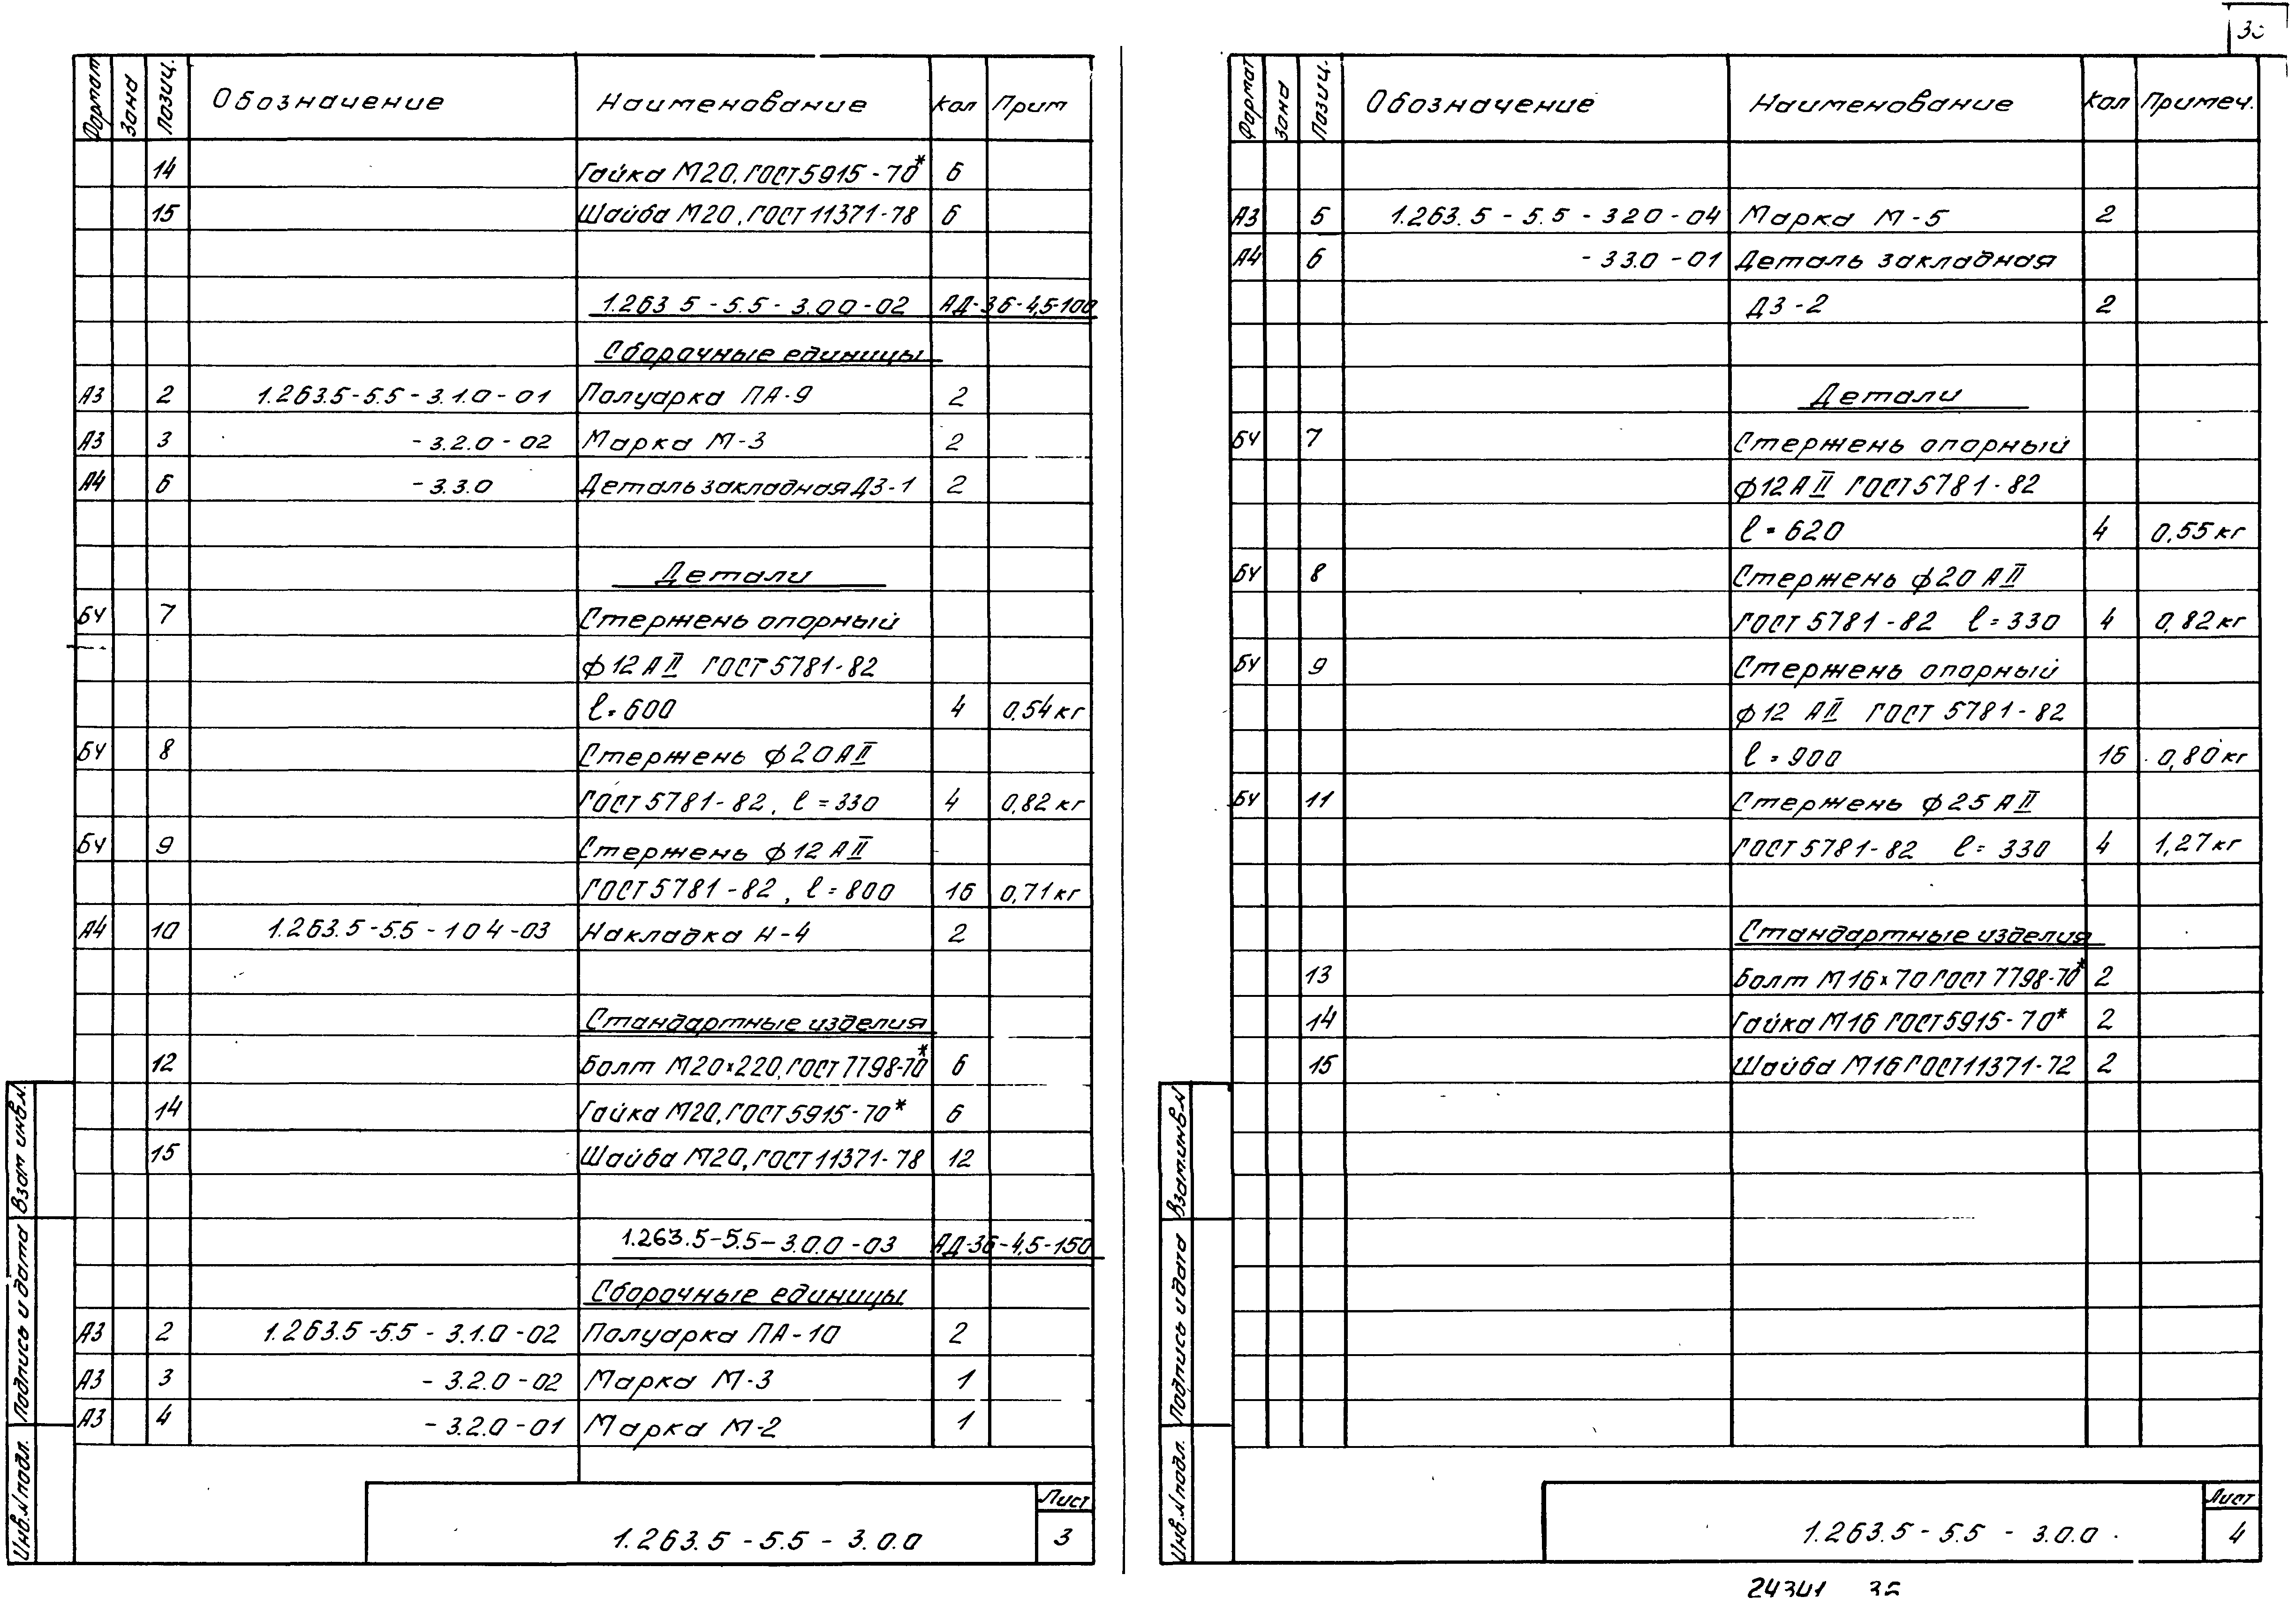 Формат Зона Позиц. Обозначение Наименование Кол Прим
14 Гайка М20, ГОСТ 5915-70* 6
15 Шайба М20, ГОСТ 11371-78 6
1.263.5-5.5-3.0.0-02 АД-36-4,5-100
Сборочные единицы
А3 2 1.263.5-5.5-3.1.0-01 Полуарка ПА-9 2
А3 3 -3.2.0-02 Марка М-3 2
А4 6 -3.3.0 Деталь закладная ДЗ-1 2
Детали
БЧ 7 Стержень опорный
ф12АII ГОСТ 5781-82
ℓ=600 4 0,54кг
БЧ 8 Стержень ф20АII
ГОСТ 5781-82, ℓ=330 4 0,82кг
БЧ 9 Стержень ф12АII
ГОСТ 5781-82, ℓ=800 16 0,71кг
А4 10 1.263.5-5.5-104-03 Накладка Н-4 2
Стандартные изделия
12 Болт М20×220, ГОСТ 7798-70* 6
14 Гайка М20, ГОСТ 5915-70* 6
15 Шайба М20, ГОСТ 11371-78 12
1.263.5-5.5-3.0.0-03 АД-36-4,5-150
Сборочные единицы
А3 2 1.263.5-5.5-3.1.0-02 Полуарка ПА-10 2
А3 3 -3.2.0-02 Марка М-3 1
А3 4 -3.2.0-01 Марка М-2 1
Взам инв.N
Подпись и дата
Инв.N подл.
Лист
1.263.5-5.5-3.0.0 3
Формат Зона Позиц. Обозначение Наименование Кол Примеч.
А3 5 1.263.5-5.5-320-04 Марка М-5 2
А4 6 -33.0-01 Деталь закладная
ДЗ-2 2
Детали
БЧ 7 Стержень опорный
ф12АII ГОСТ 5781-82
ℓ=620 4 0,55кг
БЧ 8 Стержень ф20АII
ГОСТ 5781-82 ℓ=330 4 0,82кг
БЧ 9 Стержень опорный
ф12 АII ГОСТ 5781-82
ℓ=900 16 0,80кг
БЧ 11 Стержень ф25АII
ГОСТ 5781-82 ℓ=330 4 1,27кг
Стандартные изделия
13 Болт М16×70 ГОСТ 7798-70* 2
14 Гайка М16 ГОСТ 5915-70* 2
15 Шайба М16 ГОСТ 11371-72 2
Взам.инв.N
Подпись и дата
Инв.N подл.
Лист
1.263.5-5.5-3.0.0 4
24301